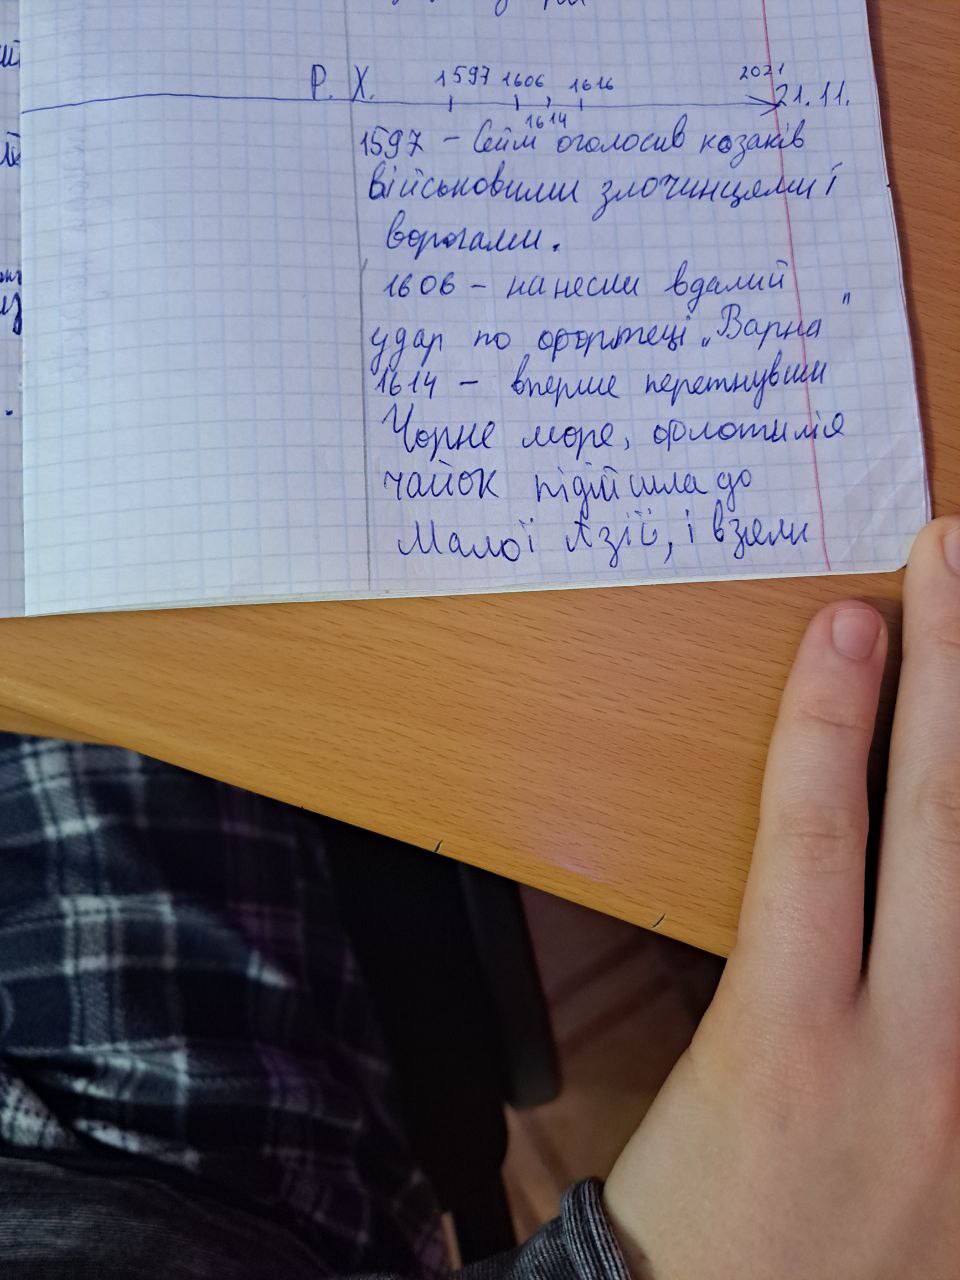 Р. Х. 1597 1606 1614 1616 2021
21.11.
1597 – Сейм оголосив козаків
військовими злочинцями і
ворогами.
1606 – нанесли вдалий
удар по фортеці „Варна"
1614 – вперше перетнувши
Чорне море, флотилія
чайок підійшла до
Малої Азії, і взяли